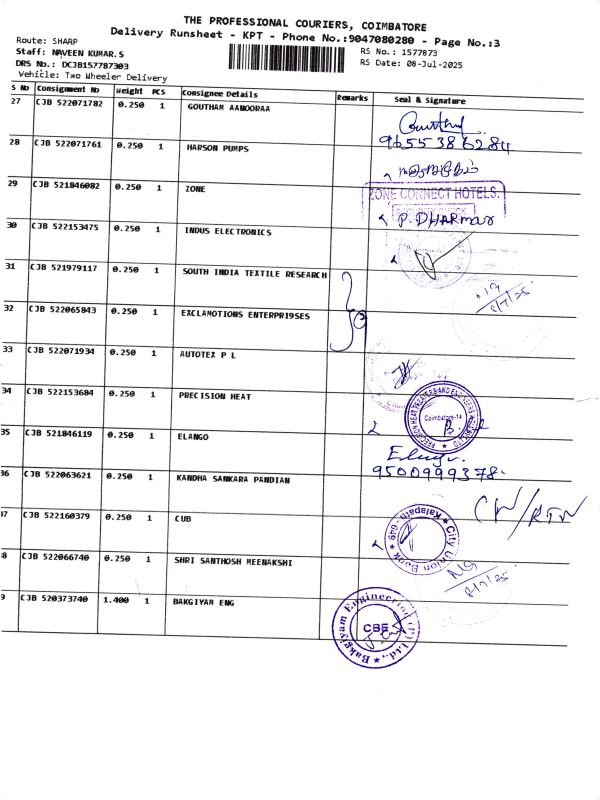 THE PROFESSIONAL COURIERS, COIMBATORE
Delivery Runsheet - KPT - Phone No.:9047080280 - Page No.:3
Route: SHARP
RS No.: 1577873
Staff: NAVEEN KUMAR.S
RS Date: 08-Jul-2025
DRS No.: DCJB157787303
Vehicle: Two Wheeler Delivery
S No Consignment No Weight PCS Consignee Details Remarks Seal & Signature
27 CJB 522071782 0.250 1 GOUTHAM AANOORAA
9655386284
28 CJB 522071761 0.250 1 HARSON PUMPS
29 CJB 521846082 0.250 1 ZONE
ZONE CONNECT HOTELS.
P. DHARMAR
30 CJB 522153475 0.250 1 INDUS ELECTRONICS
31 CJB 521979117 0.250 1 SOUTH INDIA TEXTILE RESEARCH
8/7/25
32 CJB 522065843 0.250 1 EXCLAMOTIONS ENTERPRI9SES
33 CJB 522071934 0.250 1 AUTOTEX P L
34 CJB 522153684 0.250 1 PRECISION HEAT
Coimbatore-14
35 CJB 521846119 0.250 1 ELANGO
9500999378
36 CJB 522063621 0.250 1 KANDHA SANKARA PANDIAN
CN/RTN
37 CJB 522160379 0.250 1 CUB
City Union Bank ★ Kalapatti - 649
38 CJB 522066740 0.250 1 SHRI SANTHOSH MEENAKSHI
NG
8/7/25
39 CJB 520373740 1.400 1 BAKGIYAM ENG
Bakgiyam Engineering (P) Ltd.,
CBE